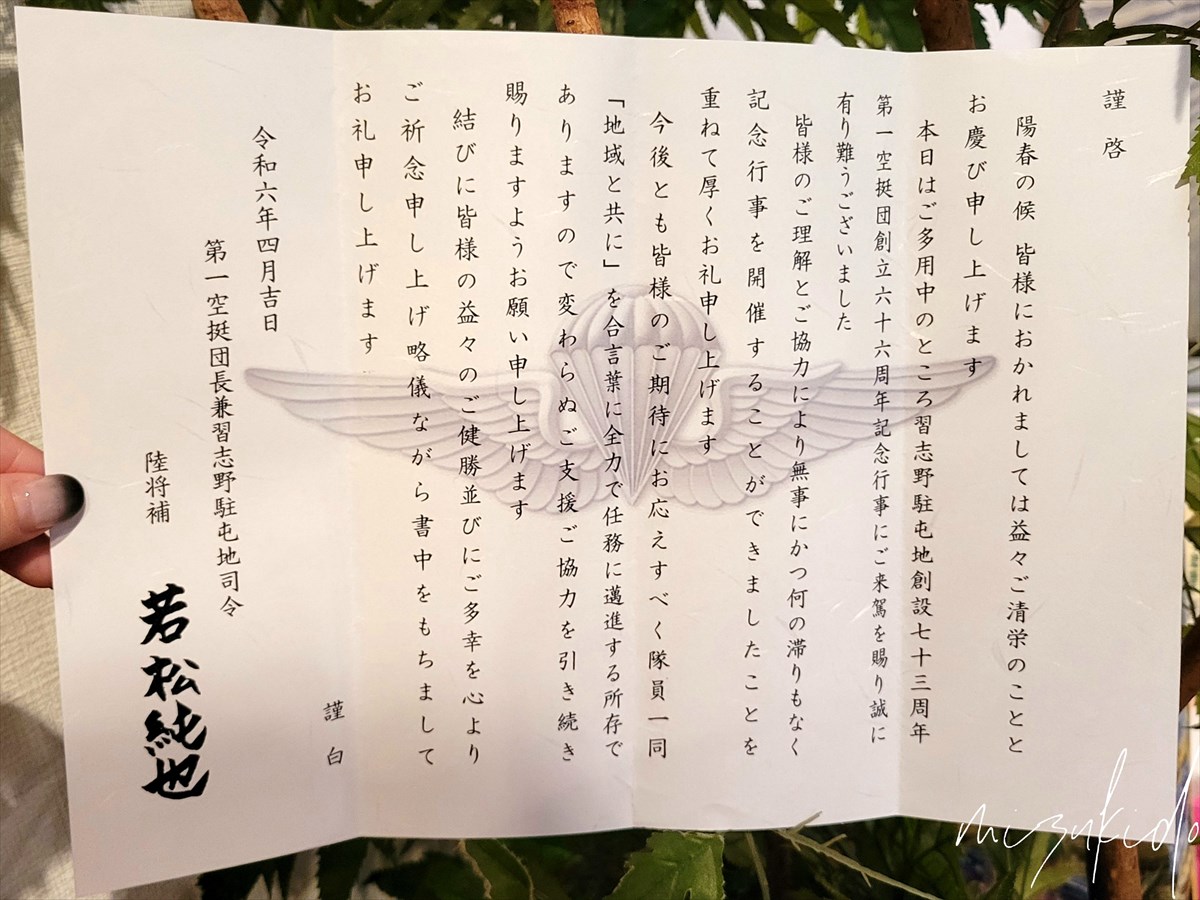 謹啓
陽春の候 皆様におかれましては益々ご清栄のことと
お慶び申し上げます
本日はご多用中のところ習志野駐屯地創設七十三周年
第一空挺団創立六十六周年記念行事にご来駕を賜り誠に
有り難うございました
皆様のご理解とご協力により無事にかつ何の滞りもなく
記念行事を開催することができましたことを
重ねて厚くお礼申し上げます
今後とも皆様のご期待にお応えすべく隊員一同
「地域と共に」を合言葉に全力で任務に邁進する所存で
ありますので変わらぬご支援ご協力を引き続き
賜りますようお願い申し上げます
結びに皆様の益々のご健勝並びにご多幸を心より
ご祈念申し上げ略儀ながら書中をもちまして
お礼申し上げます
謹白
令和六年四月吉日
第一空挺団長兼習志野駐屯地司令
陸将補
若松純也
mizukido